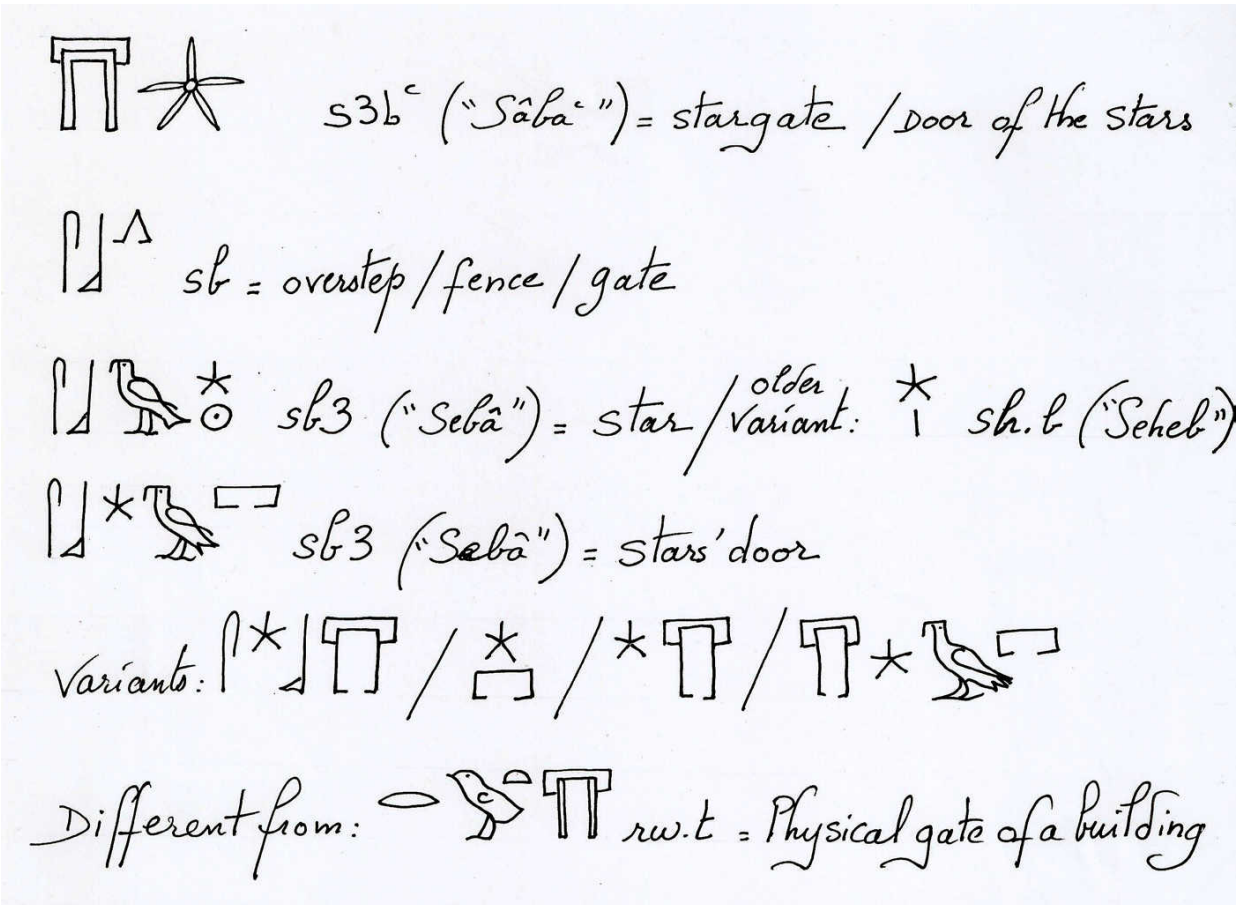 𓉿𓇼 s3bᶜ ("Sâbaᶜ") = stargate / Door of the stars
𓋴𓃀𓂻 sb = overstep / fence / gate
𓋴𓃀𓄿𓇼𓇳 sb3 ("Sebâ") = star / older variant: 𓇼𓏤 sh.b ("Seheb")
𓋴𓃀𓇼𓄿𓉐 sb3 ("Sebâ") = stars' door
Variants: 𓋴𓇼𓃀𓉿 / 𓇼𓉐 / 𓇼𓉿 / 𓉿𓇼𓄿𓉐
Different from: 𓂋𓅱𓏏𓉿 rw.t = Physical gate of a building